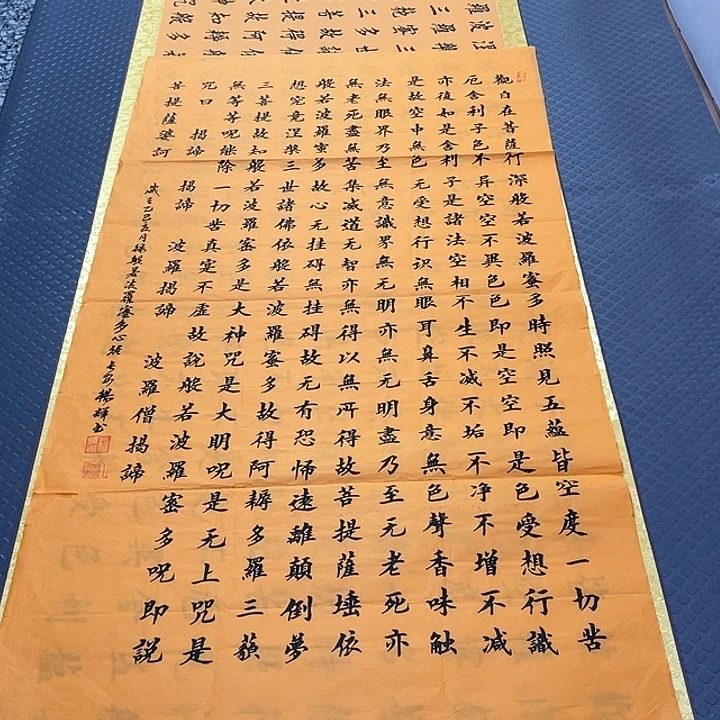 觀自在菩薩行深般若波羅蜜多時照見五蘊皆空度一切苦
厄舍利子色不异空空不異色色即是空空即是色受想行識
亦復如是舍利子是諸法空相不生不滅不垢不净不增不减
是故空中無色无受想行识無眼耳鼻舌身意無色聲香味触
法無眼界乃至無意識界無无明亦無无明盡乃至无老死亦
無老死盡無苦集滅道无智亦無得以無所得故菩提薩埵依
般若波羅蜜多故心无挂碍無挂碍故无有恐怖遠離顛倒夢
想究竟涅槃三世諸佛依般若波羅蜜多故得阿耨多羅三藐
三菩提故知般若波羅蜜多是大神咒是大明呪是无上咒是
無等等呪能除一切苦真寔不虛故說般若波羅蜜多呪即說
咒曰 揭諦 揭諦 波羅揭諦 波羅僧揭諦
菩提薩婆訶
乙巳 月 般若 羅蜜多心經 楊 書